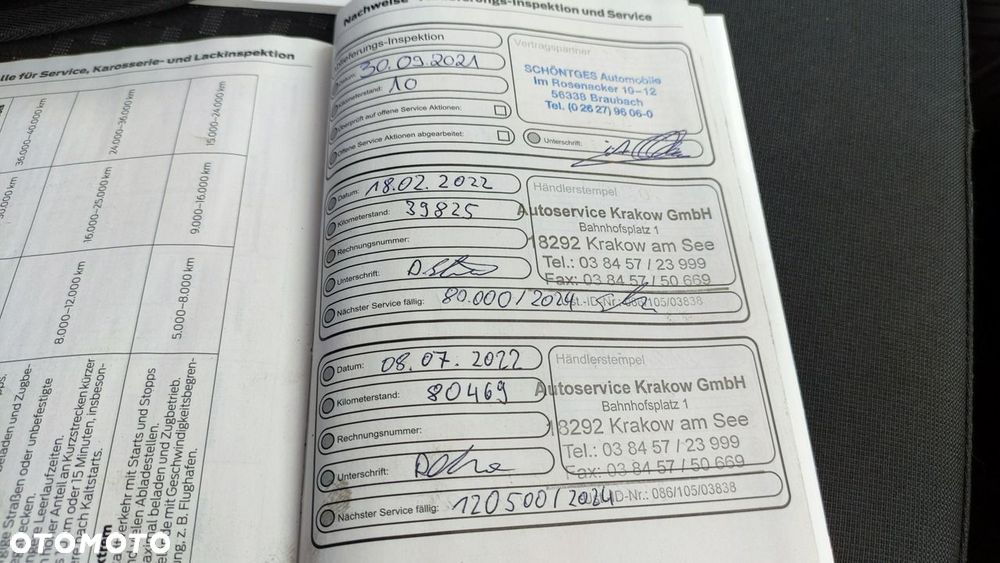 lle für Service, Karosserie- und Lackinspektion
36.000-40.000 km
24.000-36.000 km
15.000-24.000 km
16.000-25.000 km
9.000-16.000 km
8.000-12.000 km
5.000-8.000 km
eladen und Zugbe-
Straßen oder unbefestigte
e Leerlaufzeiten.
Anteil an Kurzstrecken kürzer
oder 15 Minuten, insbeson-
ach Kaltstarts.
verkehr mit Starts und Stopps
elen Abladestellen.
aximal beladen und Zugbetrieb.
de mit Geschwindigkeitsbegren-
ung, z. B. Flughafen.
-Inspektion und Service
Inspektion
Datum: 30.09.2021
Kilometerstand: 10
Überprüft auf offene Service Aktionen:
Offene Service Aktionen abgearbeitet:
Vertragspartner
SCHÖNTGES Automobile
Im Rosenacker 10-12
56338 Braubach
Tel. (0 26 27) 96 06-0
Unterschrift:
Datum: 18.02.2022
Kilometerstand: 39825
Rechnungsnummer:
Unterschrift:
Nächster Service fällig: 80.000/2024
Händlerstempel
Autoservice Krakow GmbH
Bahnhofsplatz 1
18292 Krakow am See
Tel.: 03 84 57 / 23 999
Fax: 03 84 57 / 50 669
086/105/03838
Datum: 08.07.2022
Kilometerstand: 80469
Rechnungsnummer:
Unterschrift:
Nächster Service fällig: 120500/2024
Händlerstempel
Autoservice Krakow GmbH
Bahnhofsplatz 1
18292 Krakow am See
Tel.: 03 84 57 / 23 999
Fax: 03 84 57 / 50 669
ID-Nr.: 086/105/03838
OTOMOTO